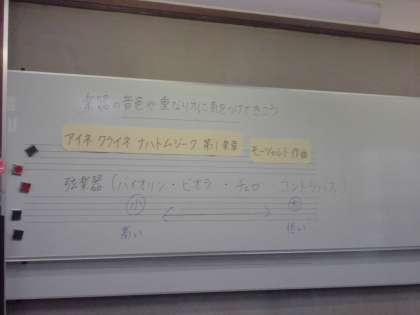 楽器の音色や重なり方に気をつけてきこう
アイネ クライネ ナハトムジーク 第1楽章 モーツァルト 作曲
弦楽器(バイオリン・ビオラ・チェロ コントラバス)
小 大
高い 低い